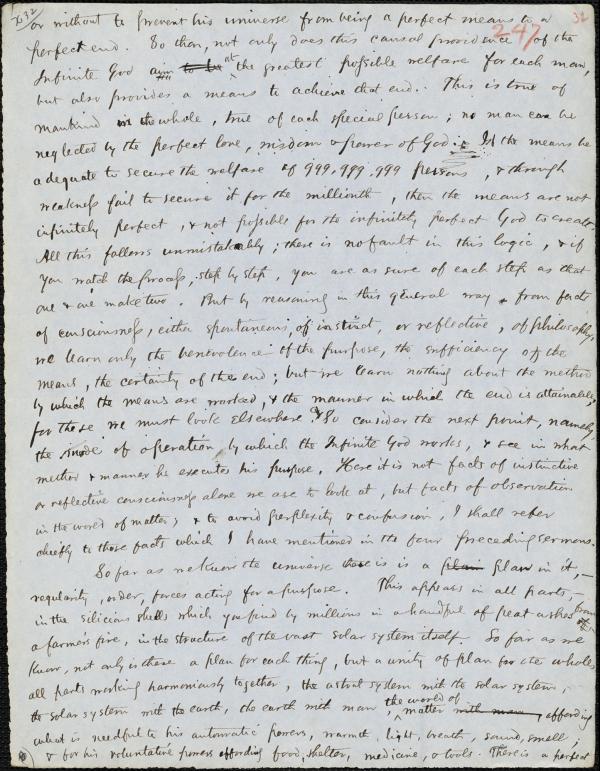 or without to prevent his universe from being a perfect means to a
perfect end. So then, not only does this causal providence of the
Infinite God aim at the greatest possible welfare for each man,
but also provides a means to achieve that end. This is true of
mankind in the whole, true of each special person; no man can be
neglected by the perfect love, wisdom & power of God. If the means be
adequate to secure the welfare of 999,999,999 persons, & through
weakness fail to secure it for the millionth, then the means are not
infinitely perfect, & not possible for the infinitely perfect God to create.
All this follows unmistakably; there is no fault in this logic, & if
you watch the process, step by step, you are as sure of each step as that
one & one make two. But by reasoning in this general way, from facts
of consciousness, either spontaneous, of instinct, or reflective, of philosophy,
we learn only the benevolence of the purpose, the sufficiency of the
means, the certainty of the end; but we learn nothing about the method
by which the means are worked, & the manner in which the end is attainable;
for those we must look elsewhere. So consider the next point, namely,
the mode of operation, by which the Infinite God works, & see in what
method & manner he executes his purpose. Here it is not facts of instinctive
or reflective consciousness alone we are to look at, but facts of observation
in the world of matter; & to avoid perplexity & confusion, I shall refer
chiefly to those facts which I have mentioned in the four preceding sermons.
So far as we know the universe there is a plan in it,—
regularity, order, forces acting for a purpose. This appears in all parts,—
in the silicious shells which you find by millions in a handful of peat ashes from
a farmer's fire, in the structure of the vast solar system itself. So far as we
know, not only is there a plan for each thing, but a unity of plan for the whole,
all parts working harmoniously together, the astral system with the solar system,
the solar system with the earth, the earth with man, the world of matter affording
what is needful to his automatic powers, warmth, light, breath, sound, smell;
& for his voluntative powers affording food, shelter, medicine, & tools. There is a perfect
32
247